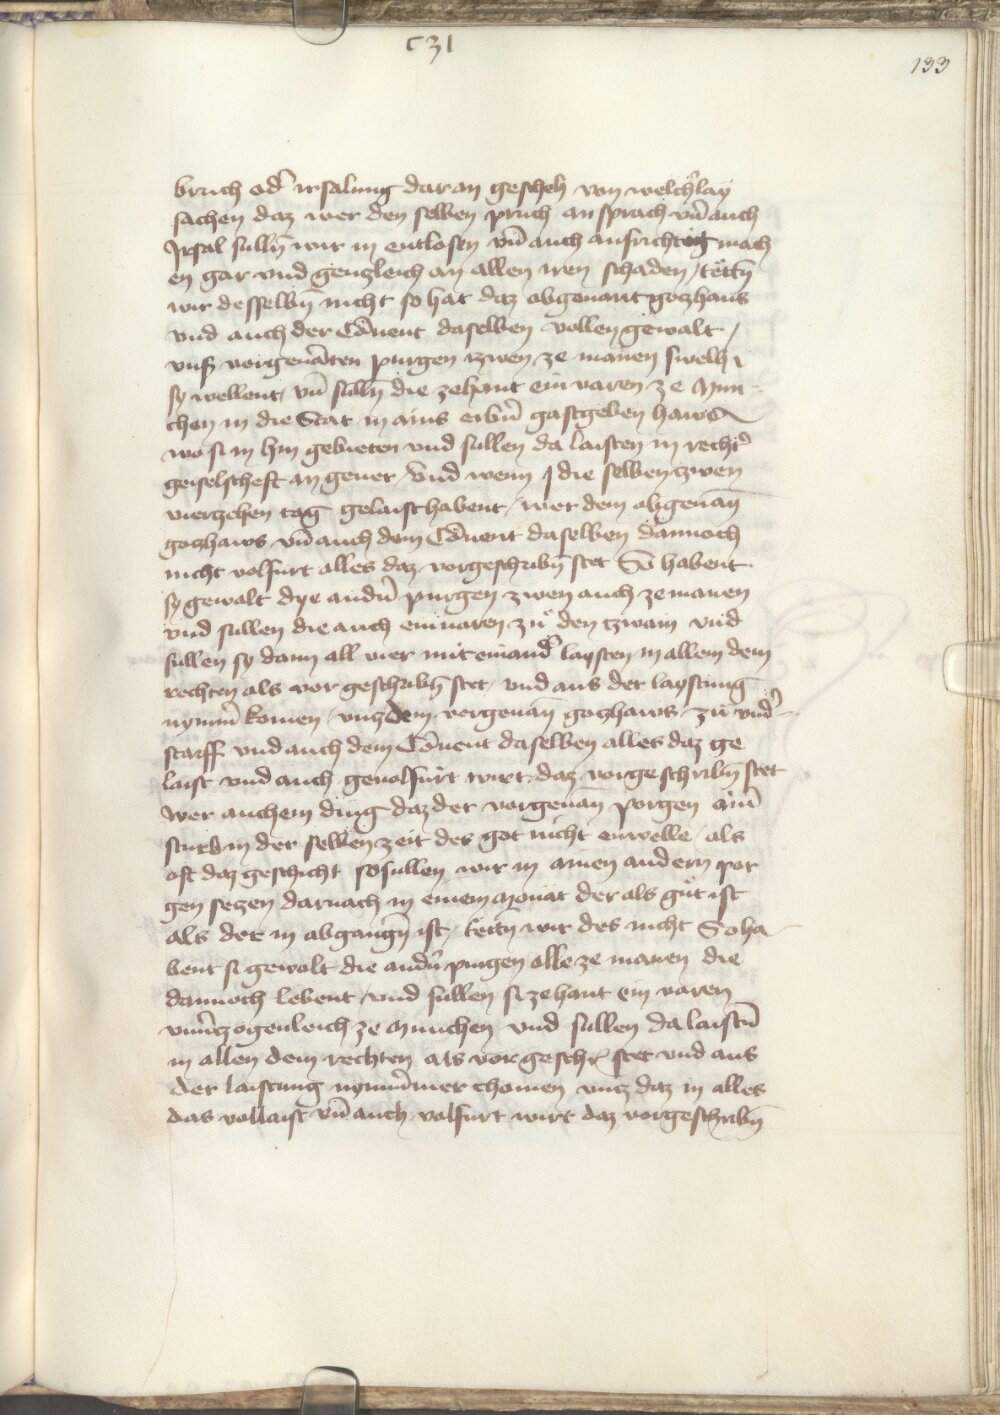 c31
133
bruch od̄ irsalung daran gescheh von welcherlay
sachen daz wer den selben pruch an sprach vn̄ auch
Irsal sulln̄ wir in entlosen vn̄ auch ausrichtig mach
en gar vnd genczleich an allen iren schaden / tetn̄
wir desselbn̄ nicht so hat daz obgenant goczhaus
vnd auch der Cōuent daselben vollen gewalt /
vnser vorgenāten purgen zwen ze manen swelh
sy wellent / vn̄ sulln̄ die zehant ein varen ze Mun-
chen in die Stat in ains erbn̄ gastgeben haws
wo si in hin gebieten vnd sullen da laisten in rechter
geiselscheft an geuer / Vnd wenn die selben zwen
vierzehen tag gelaist habent / wer dem obgenan̄
goczhaws vn̄ auch dem Cōuent daselben dannoch
nicht volfurt alles daz vorgeschribn̄ stet So habent
sy gewalt dye andn̄ purgen zwen auch ze manen
vnd sullen die auch einuaren zů den tzwain vnd
sullen sy dann all vier mit einand̄ laysten in allem dem
rechten als vor geschribn̄ stet / vnd aus der laystung
nym̄n̄ komen / vncz dem vorgenan̄ goczhaws zu vnd̄-
starff vnd auch dem Cōuent daselben alles daz ge
laist vnd auch geuolfurt wirt daz vorgeschribn̄ stet
Wer auch ein ding daz der vorgenan̄ porgen ain̄
sturb in der selben zeit des got nicht enwelle / als
oft daz geschicht so sullen wir in ainen andern por
gen seczen darnach in einem Monat der als gut ist
als der in abgangn̄ ist / tetn̄ wir des nicht So ha
bent si gewalt die andn̄ purgen alle ze manen die
dannoch lebent / vnd sullen si zehant ein varen
vnu̇erzogenleich ze Munchen vnd sullen da laistn̄
in allen dem rechten als vorgeschr̄ stet vnd aus
der laistung nymmermer chomen vncz daz in alles
das vollaist vn̄ auch volfurt wirt daz vorgeschribn̄